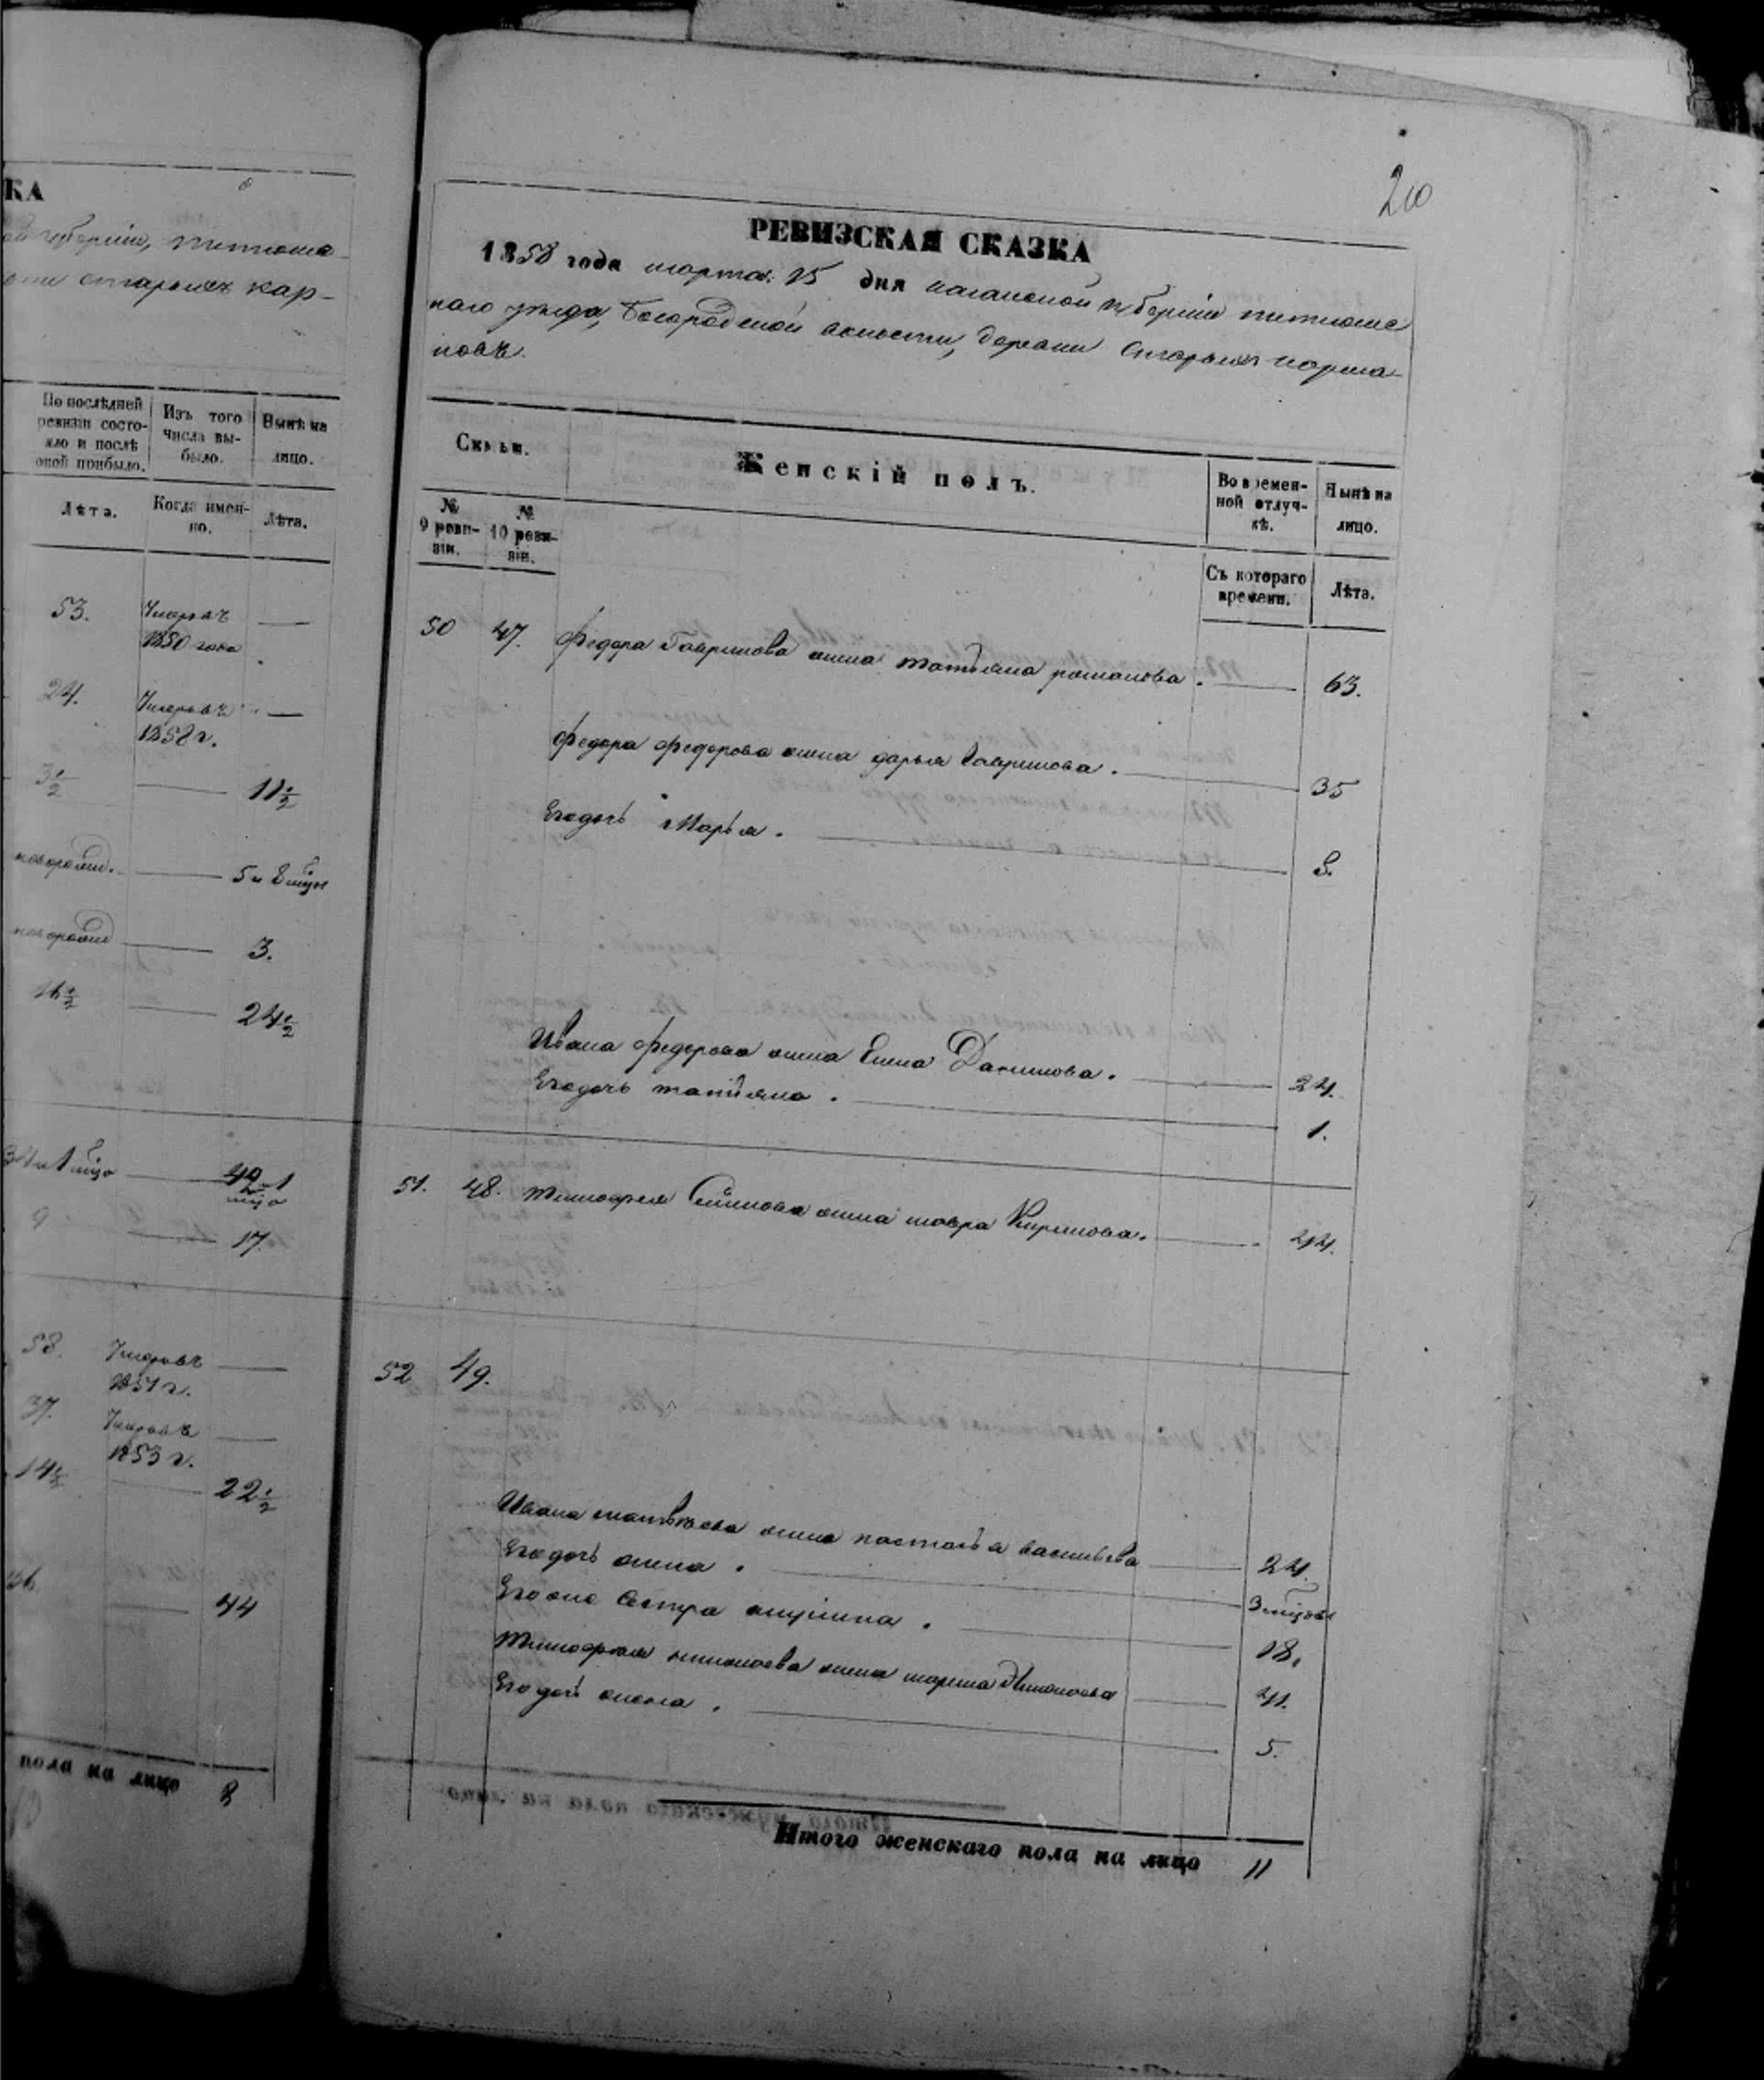 КА
губерніи,
старыхъ кар-
По послѣдней ревизіи состо-яло и послѣ оной прибыло.
Изъ того числа вы-было.
Нынѣ на лицо.
Лѣта.
Когда имен-но.
Лѣта.
53. Умеръ въ
1850 года
24. Умеръ въ
1858 г.
3½ 11½
новорожд. 5 и 8 мцов
новорожд 3.
16½ 24½
9 17.
58. Умеръ въ
1851 г.
37. Умеръ въ
1853 г.
14½ 22½
36 44
пола на лицо 8
20
РЕВИЗСКАЯ СКАЗКА
1858 года марта 15 дня казанской губерніи тетюшс
каго уѣзда, Богородской волости, деревни Старыхъ карма-
новъ.
Семьи.
Женскій полъ.
Во времен-ной отлуч-кѣ.
Нынѣ на лицо.
№ 9 реви-зіи.
№ 10 реви-зіи.
Съ котораго времени.
Лѣта.
50 47. Федора Гаврилова жена татьяна романова. 63.
Федора федорова жена дарья Гаврилова. 35
Егодочь Марья. 8.
Ивана федорова жена Елена Данилова. 24.
Егодочь татьяна. 1.
51. 48. тимофея Семинова жена мавра Кирилова. 44.
52 49.
Ивана матвѣева жена настасья васильева 24.
Егодочь анна. 3 мцовъ
Его оно Сестра акулина. 18.
тимофея жена марина 41.
Его дочь 5.
Итого женскаго пола на лицо 11